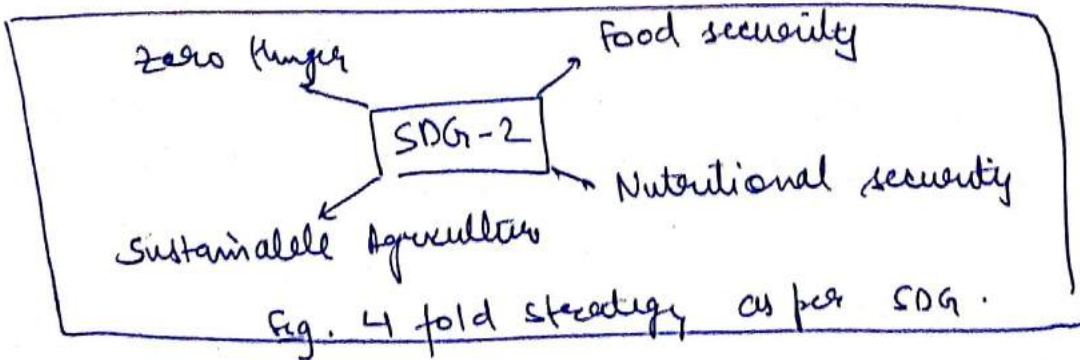 Zero Hunger
Food security
SDG-2
Nutritional security
Sustainable Agriculture
Fig. 4 fold strategy as per SDG.